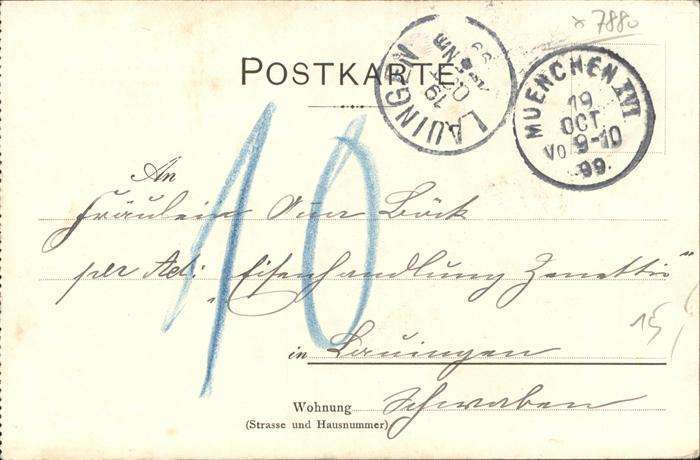 * 7880
POSTKARTE
LAUINGEN
19 OCT
99
MUENCHEN XVI
19
OCT.
Vo 9-10
99.
10
An
Fräulein Böck
per Adr: "Eisenhandlung Zenettis"
15
in Lauingen
Wohnung Schwaben
(Strasse und Hausnummer)